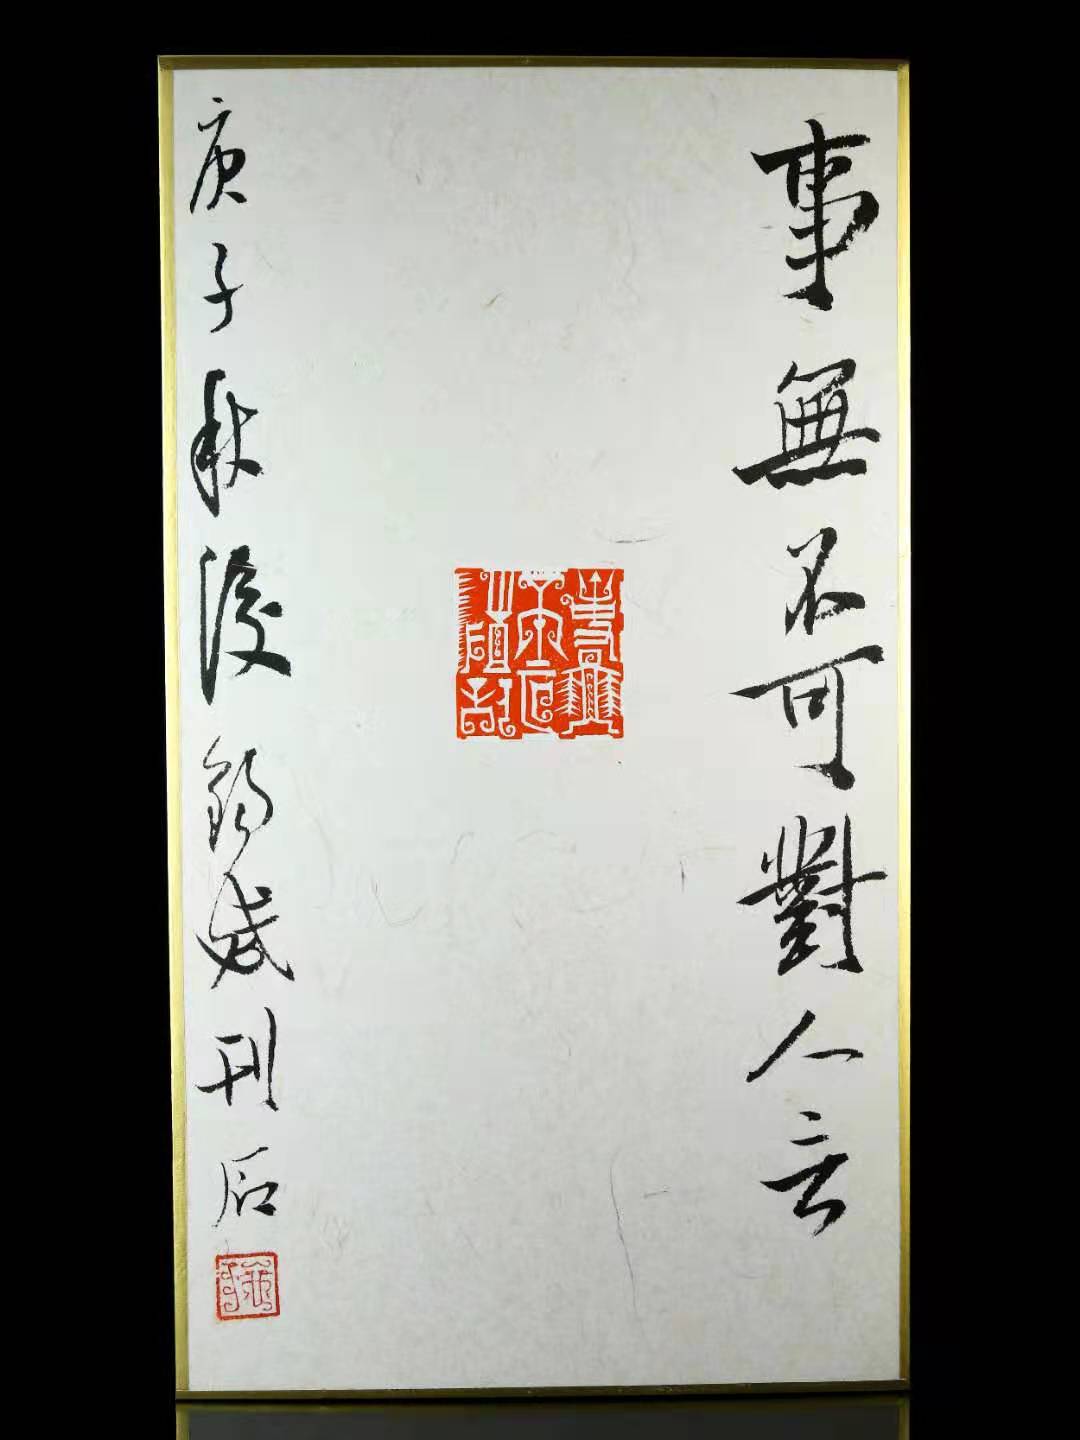 事無不可對人言
庚子秋後錦成刊石